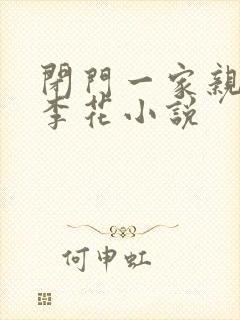 閉門一家親
李花小説
何申虹